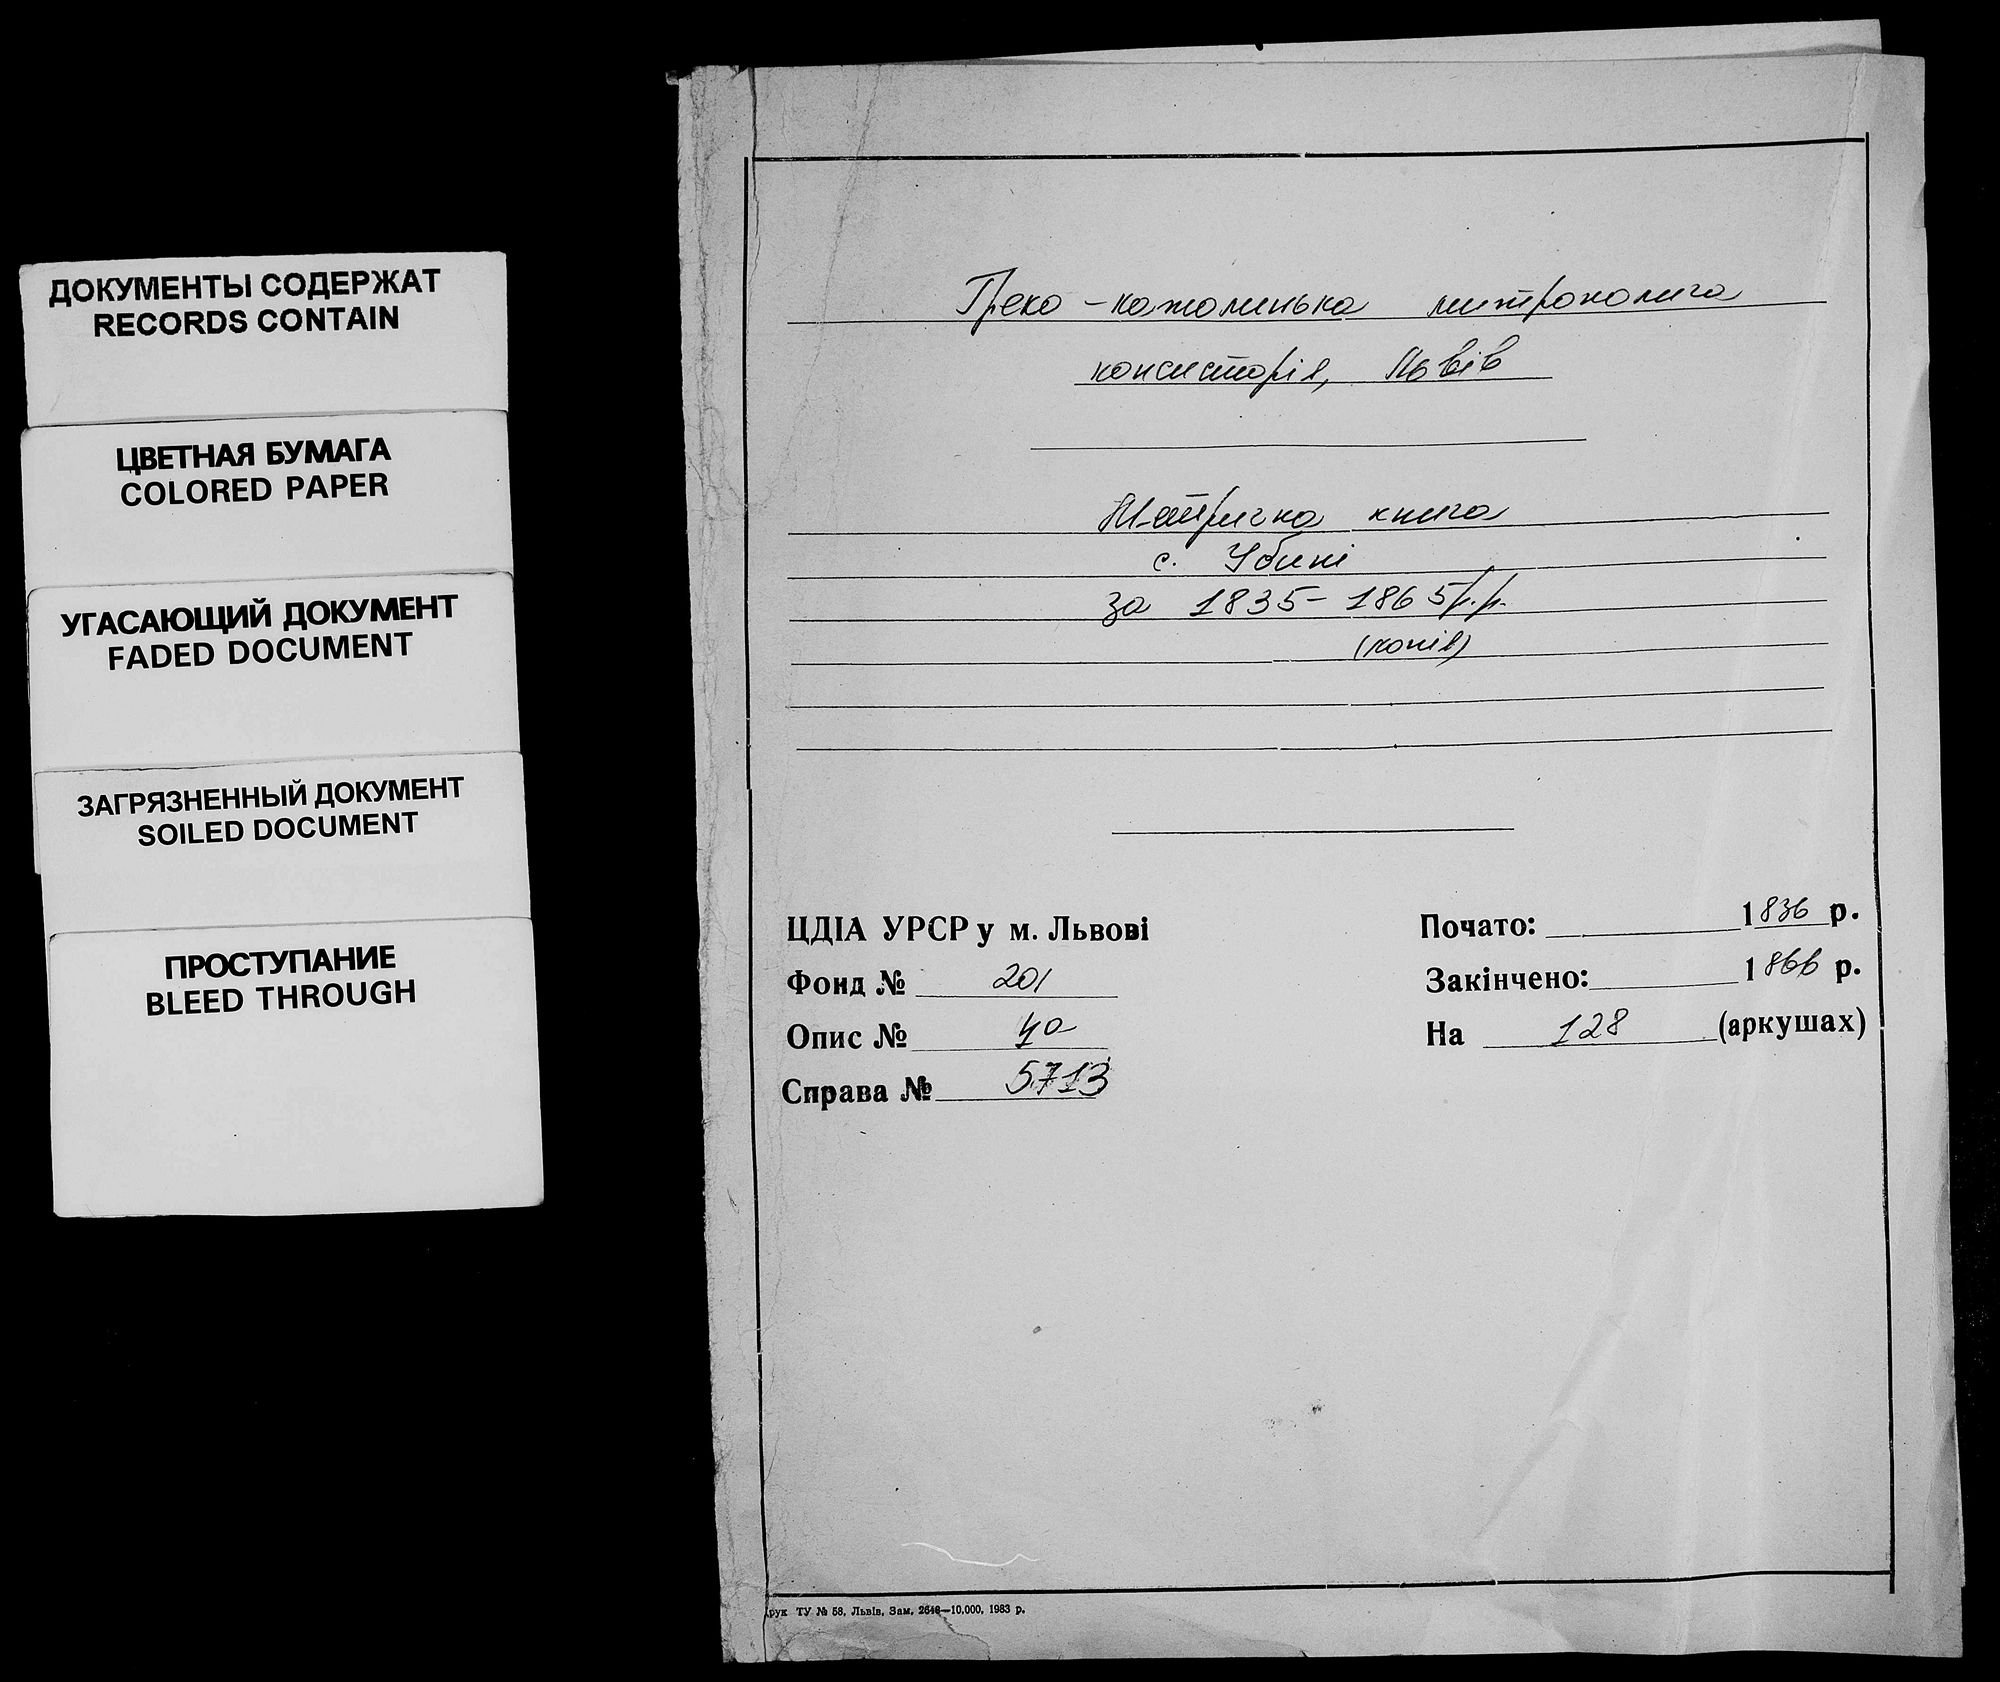 ДОКУМЕНТЫ СОДЕРЖАТ
RECORDS CONTAIN
ЦВЕТНАЯ БУМАГА
COLORED PAPER
УГАСАЮЩИЙ ДОКУМЕНТ
FADED DOCUMENT
ЗАГРЯЗНЕННЫЙ ДОКУМЕНТ
SOILED DOCUMENT
ПРОСТУПАНИЕ
BLEED THROUGH
Греко-католицька митрополича
консисторія, Львів
Метрична книга
с. Убині
за 1835-1865р.р.
(копія)
ЦДІА УРСР у м. Львові
Фонд № 201
Опис № 4а
Справа № 5713
Почато: 1836 р.
Закінчено: 1866 р.
На 128 (аркушах)
Друк ТУ № 58, Львів, Зам. 2648—10.000, 1983 р.